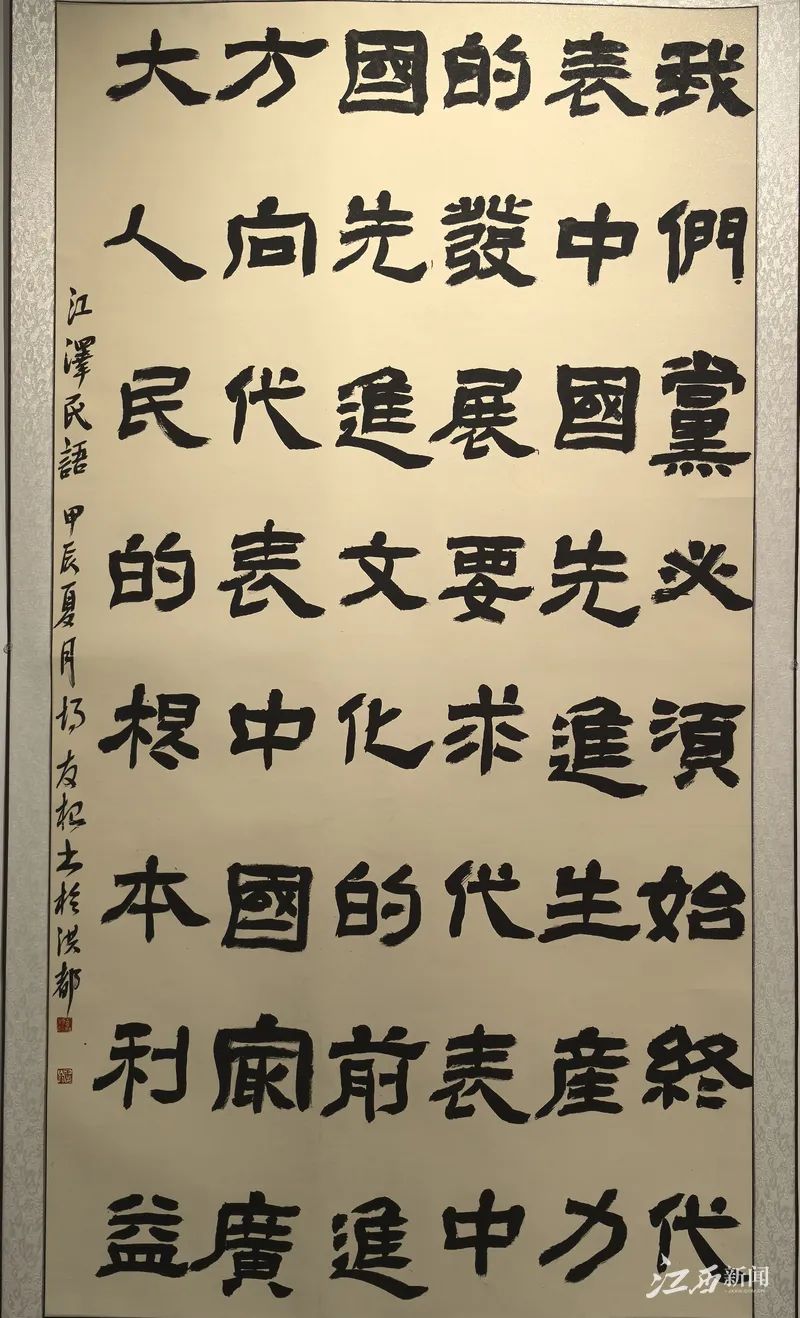 我們黨必須始終代
表中國先進生產力
的發展要求代表中
國先進文化的前進
方向代表中國最廣
大人民的根本利益
江澤民語 甲辰夏月 楊友根書於洪都
江西新闻